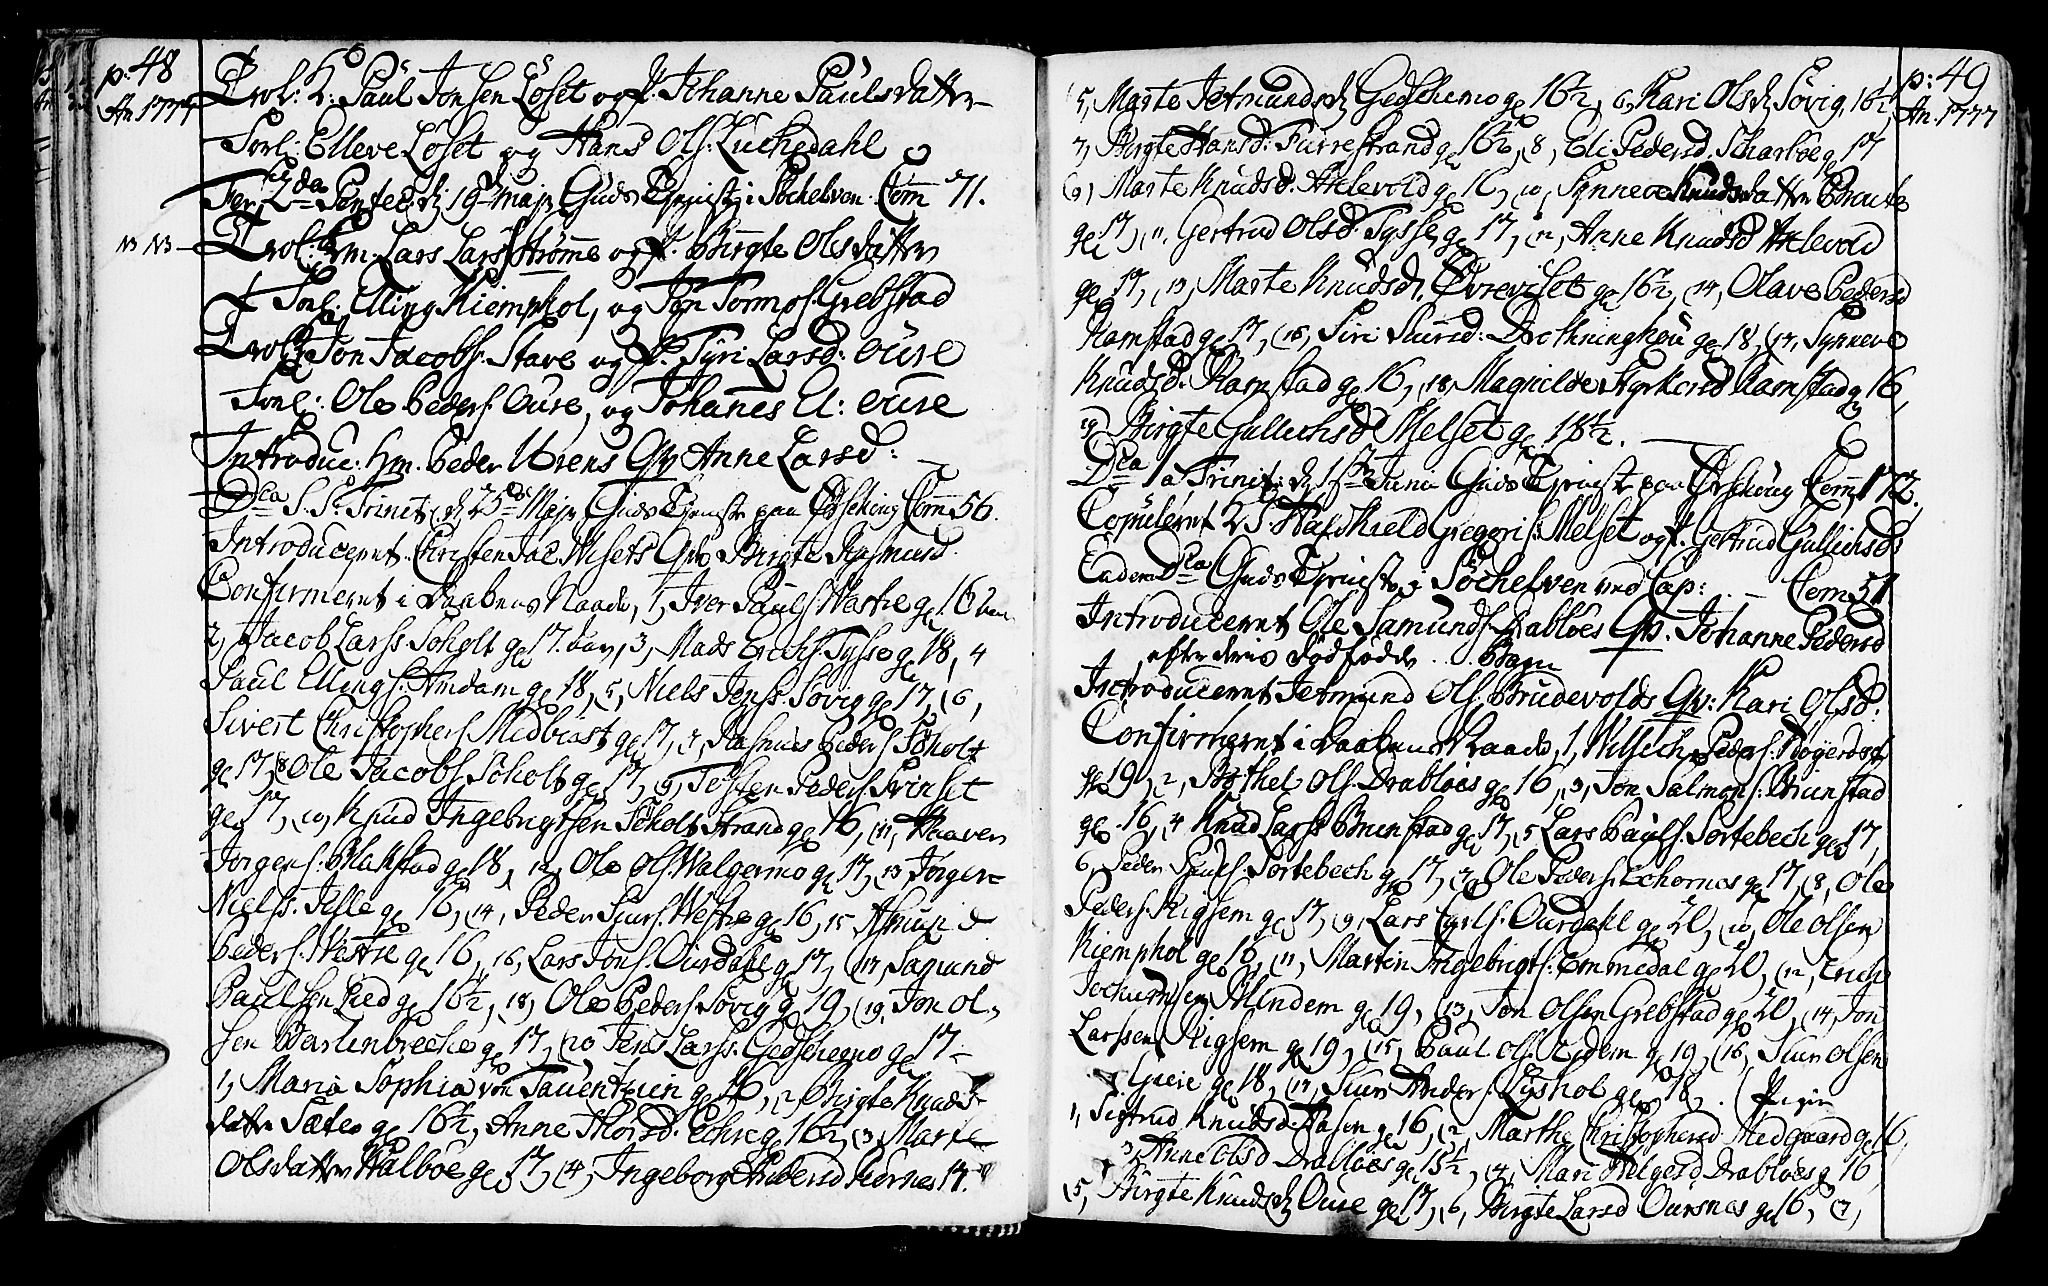 p: 48
An 1777
Trol: K: Paul Jonsen Løset og P. Johanne Paulsdatter
Forl: Elleve Løset og Hans Ols: Luchedahl
Fer. 2da Pentec: d 19 Maji Guds Tjenist i Søchelven Com 71.
NB NB Trol: Em. Lars Larss Strømme og P. Birgte Olsdatter
Forl: Elling Kiemphol, og Jon Tormos: Grebstad
Trol: Jon Jacobs. Stave og P. Tyri Larsd: Oure
Forl: Ole Peders. Oure, og Johannes El: Oure
Introduc: Hm. Peder Urens Qv Anne Larsd:
Dca S. S. Trinit: d 25de Maji Guds Tjenist paa Ørschoug Com 56.
Introduceret Christen Jac Wisets Qv Birgte Rasmusd.
Confirmeret i Daabens Naade, 1, Iver Pauls Westre gl 16 aar
2, Jacob Larss Soholt gl 17 aar, 3, Mads Erichs Tysse gl 18, 4
Paul Ellings. Amdam gl 18, 5, Niels Jenss. Sovig gl 17, (6,
Sivert Christophers Midbiøst gl 17, 7, Rasmus Peders Soholt
gl 17, 8, Ole Jacobs. Soholt gl 17, 9, Tosten Peders. Svinset
gl 17, (10, Knud Ingebrigtsen Soholt Strand gl 16, (11, Haaven
Jørgens. Blakstad gl 18, 12, Ole Ols. Walgermo gl 17, 13, Jørgen
Nielss. Jelle gl 16, (14, Peder Siurs. Westre gl 16, 15 Asmund
Peders. Westre gl 16, 16, Lars Jons. Ourdahl gl 17, (17, Samund
Paulsen Lied gl 16½, 18, Ole Peders Sovig gl 19, (19, Jon Ol-
sen Bertenbreche gl 17, (20 Jens Larss. Gedschemo gl 17-
1, Maria Sophia von Tauentzien gl 16, 2, Birgte Knuds-
datter Sætre gl 16½, Anne Thorsd. Echre gl 16½, 3, Marte
Olsdatter Walbøe gl 17, 4, Ingeborg Andersd Hornes 17.
p: 49
An. 1777
5, Marte Jetmundsd Gedschemo gl 16½, 6, Kari Olsd Sovig, 16½
7, Birgte Hansd: Furrestrand gl 16½, 8, Eli Pedersd. Scharbøe gl 17
(9, Marte Knudsd. Aklevold gl 16, 10, Synneve Knudsdatter Brunte
gl 17, 11. Gertrud Olsd. Tysse, gl 17, 12, Anne Knudsd Aklevold
gl 17, 13, Marte Knudsd, Øvreviset gl 16½, (14, Olave Pedersd
Ramstad gl 17, (15, Siri Siursd: Drothninghou gl 18, (17, Synneve
Knudsd. Ramstad gl 16, (18, Magnilde Styrkersd Ramstad gl 16,
19, Birgte Gullichsd Melset gl 18½.
Dca 1a Trinit: d 1ste Junii Guds Tjenist paa Ørschoug Com 172.
Copuleret 2 S. Halskield Gregoris. Melset og P. Gertrud Gullichsd
Eadem Dca Guds Tjenist i Søchelven ved Cap: - Com 51
Introduceret Ole Samunds. Drabløes Qv. Johanne Pedersd
efter deris dødfødde Barn
Introduceret Jetmund Ols. Brudevolds Qv: Kari Olsd.
Confirmeret i Daabens Naade, 1, Willich Peders.
gl 19, 2, Bothel Ols. Drabløes gl 16, 3, Jon Salmons. Brunstad
gl 16, 4 Knud Larss Brunstad gl 17, 5, Lars Pauls. Sortebech gl 17,
6, Peder Pauls. Sortebech gl 17, 7, Ole Peders. Echornes gl 17 (8, Ole
Peders. Rigsem gl 17, (9, Lars Carls. Ourdahl gl 20, 10, Ole Olsen
Kiemphol gl 16, (11, Marten Ingebrigts. Emmedal gl 20, (12, Erich
Jochumsen Mindem gl 19, (13, Jon Olsen Grebstad gl 20, (14, Jon
Larssen Rigsem gl 19, (15, Paul Ols. Riksem gl 19, (16, Siur Olsen
Gieie gl 18, 17, Siur Anders. Lyshol gl 18. (Piger
1, Sigtrud Knudsd. Aasen gl 16, (2, Marthe Christophersd Medgaard gl 16.
3, Anne Olsd Drabløes gl 15½, (4, Mari Helgesd. Drabløes gl 16
(5, Birgte Knudsd Oure gl 17, (6, Birgte Larsd Oursnes gl 16, 7,